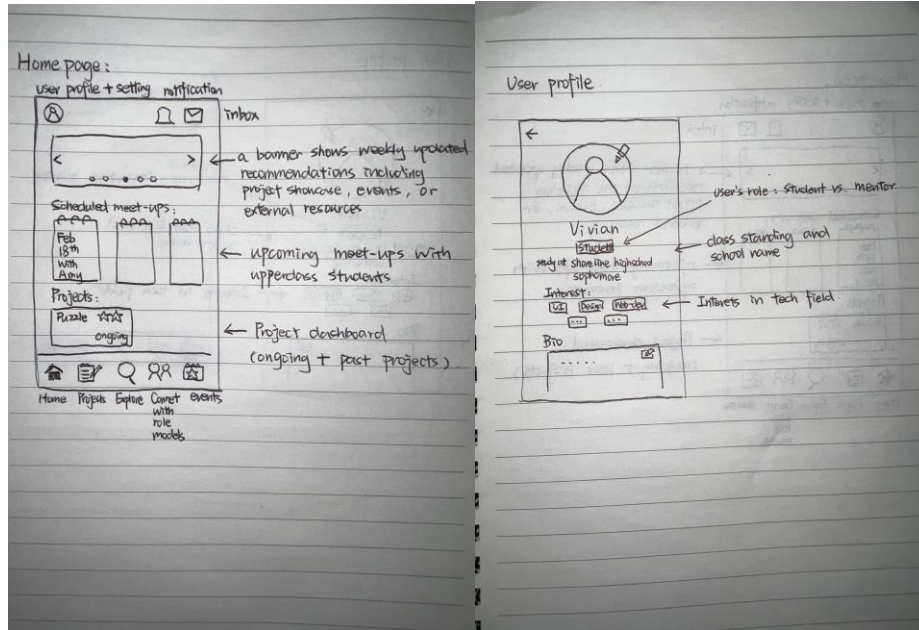 Home page:
user profile + setting notification
inbox
< >
a banner shows weekly updated
recommendations including
project showcase, events, or
external resources
Scheduled meet-ups:
Feb
18th
with
Amy
upcoming meet-ups with
upperclass students
Projects:
Puzzle ☆☆
ongoing
Project dashboard
(ongoing + past projects).
Home Projects Explore Connet events
with
role
models
User profile
user's role: student vs. mentor
Vivian
Student
study at shoreline highschool
sophomore
class standing and
school name
Interest:
UI Design Web-dev
... ...
Intersts in tech field
Bio
.....